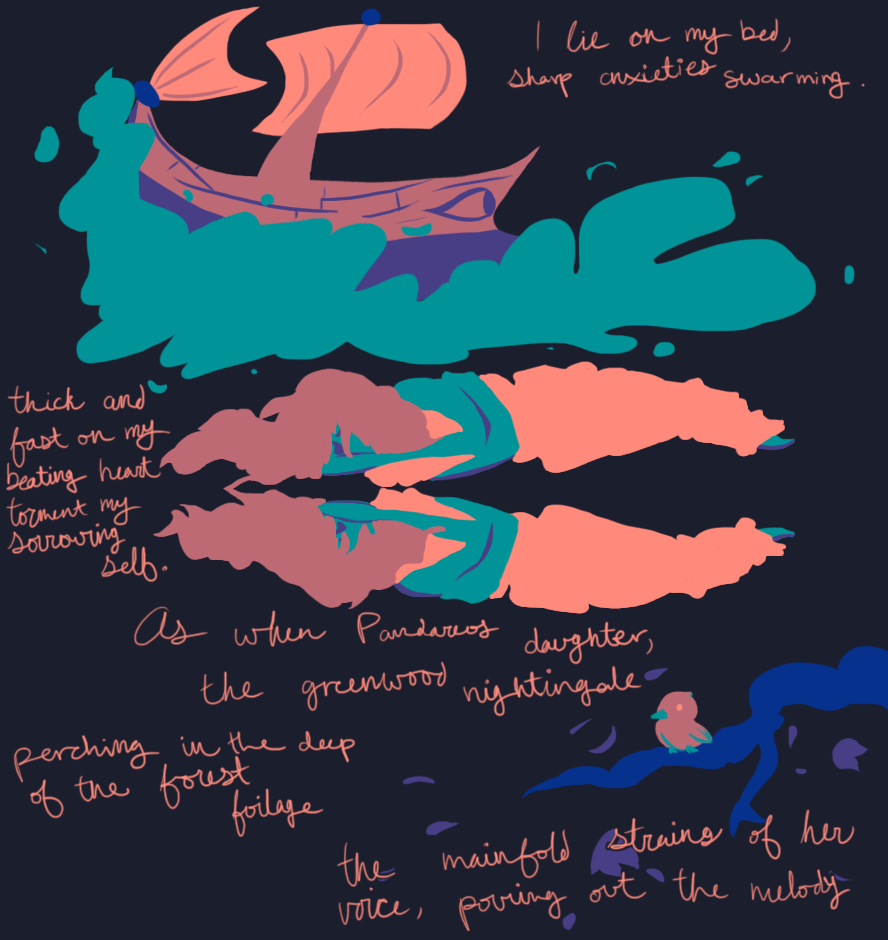 I lie on my bed,
sharp anxieties swarming.
thick and
fast on my
beating heart
torment my
sorrowing
self.
As when Pandareos daughter,
the greenwood nightingale
perching in the deep
of the forest
foilage
the mainfold strains of her
voice, pouring out the melody